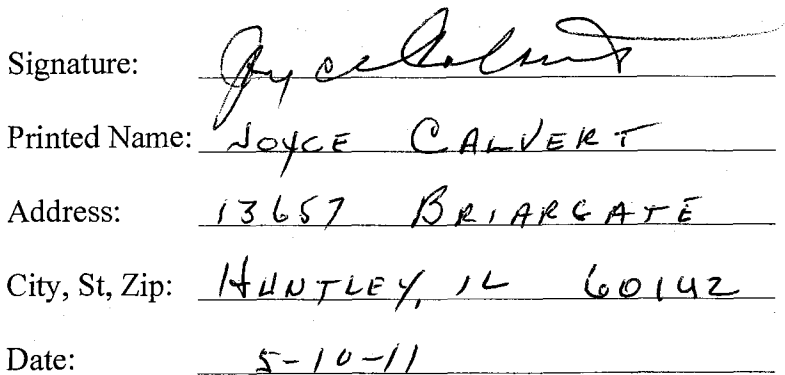 Signature: Joyce Calvert
Printed Name: JOYCE CALVERT
Address: 13657 BRIARGATE
City, St, Zip: HUNTLEY, IL 60142
Date: 5-10-11